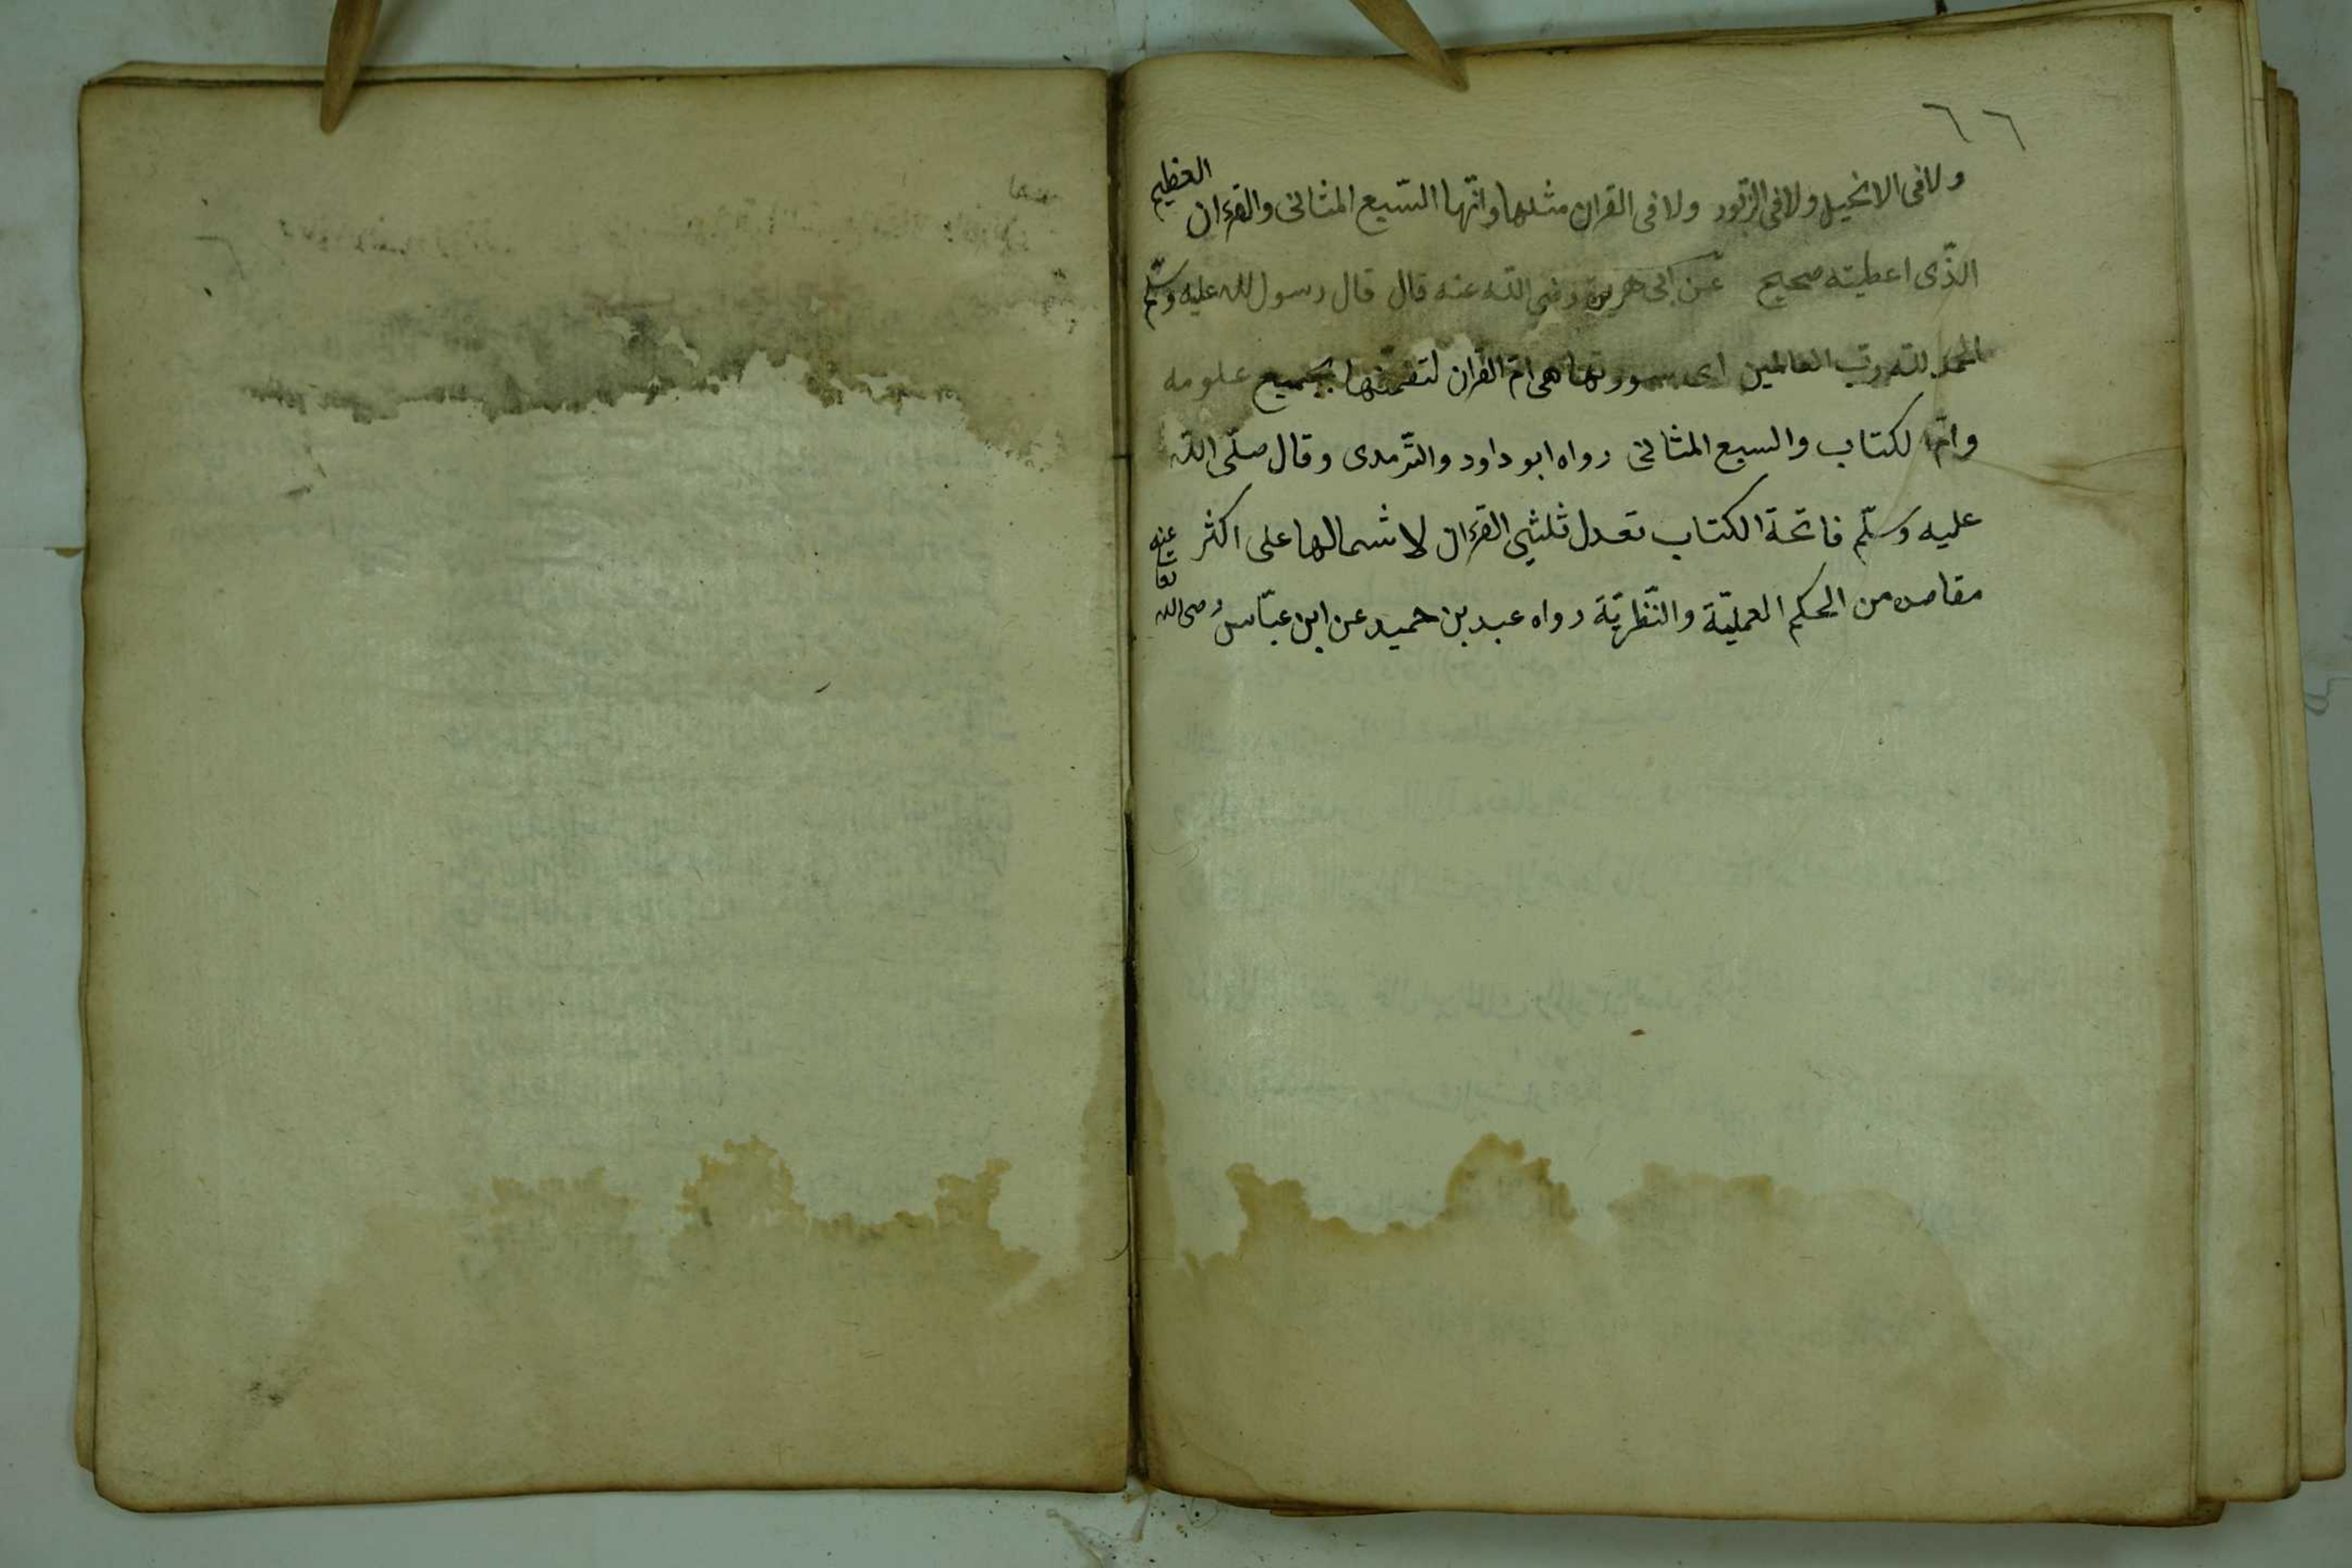 ٦٦
ولا فى الانجيل ولا فى الزّبور ولا فى القران مثلها وانّها السّبع المثانى والقرءان العظيم
الذّى اعطيته صحيح عن ابى هريرة رضى اللّه عنه قال قال رسول الله عليه وسلّم
الحمد للّه ربّ العالمين اى سورتها هى امّ القران لتضمّنها بجميع علومه
وامّ الكتاب والسبع المثانى رواه ابو داود والتّرمدى وقال صلّى اللّه
عليه وسلّم فاتحة الكتاب تعدل ثلثى القرءان لاشمالها على اكثر
مقاصده من الحكم العمليّة والنّظريّة رواه عبد بن حميد عن ابن عبّاس رضى الله تعا عنه